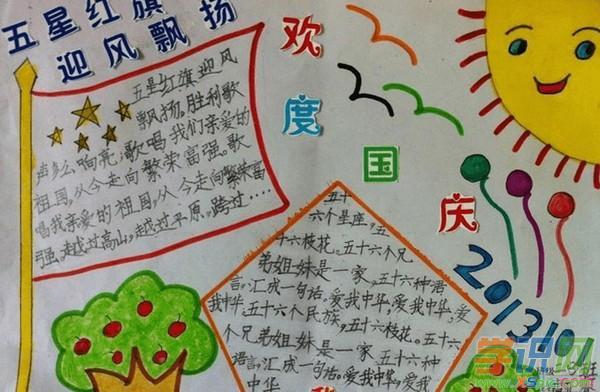 五星红旗
迎风飘扬
五星红旗迎风
飘扬,胜利歌
声多么响亮,歌唱我们亲爱的
祖国,从今走向繁荣富强。歌
唱我亲爱的祖国,从今走向繁荣富
强。越过高山,越过平原。跨过……
欢
度
国
庆
2013.10.1
五十
六个星座,五
十六枝花。五十六个兄
弟姐妹是一家,五十六种语
言,汇成一句话。爱我中华,爱我中华,爱
我中华,五十六个民族,五十六枝花。五十六
个兄弟姐妹是一家五十六种
语言,汇成一句话。爱我中华,爱我
中华
学识网